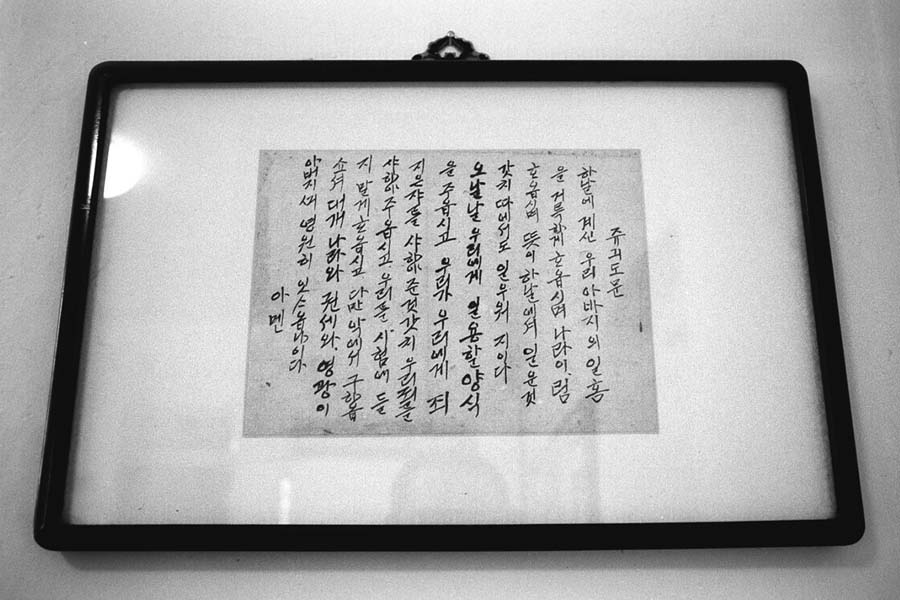 쥬긔도문
하날에 계신 우리 아바지의 일홈
을 거륵하게 ᄒᆞ옵시며 나라이 림
ᄒᆞ옵시며 뜻이 하날에셔 일운것
갓치 따에서도 일우워 지이다
오날날 우리에게 일용할 양식
을 주옵시고 우리가 우리에게 죄
지은쟈를 샤하야 준것갓치 우리죄를
샤하야 주옵시고 우리를 시험에 들
지 말게 ᄒᆞ옵시고 다만 악에서 구하옵
쇼셔 대개 나라와 권세와 영광이
아버지께 영원히 잇스옵나이다
아멘